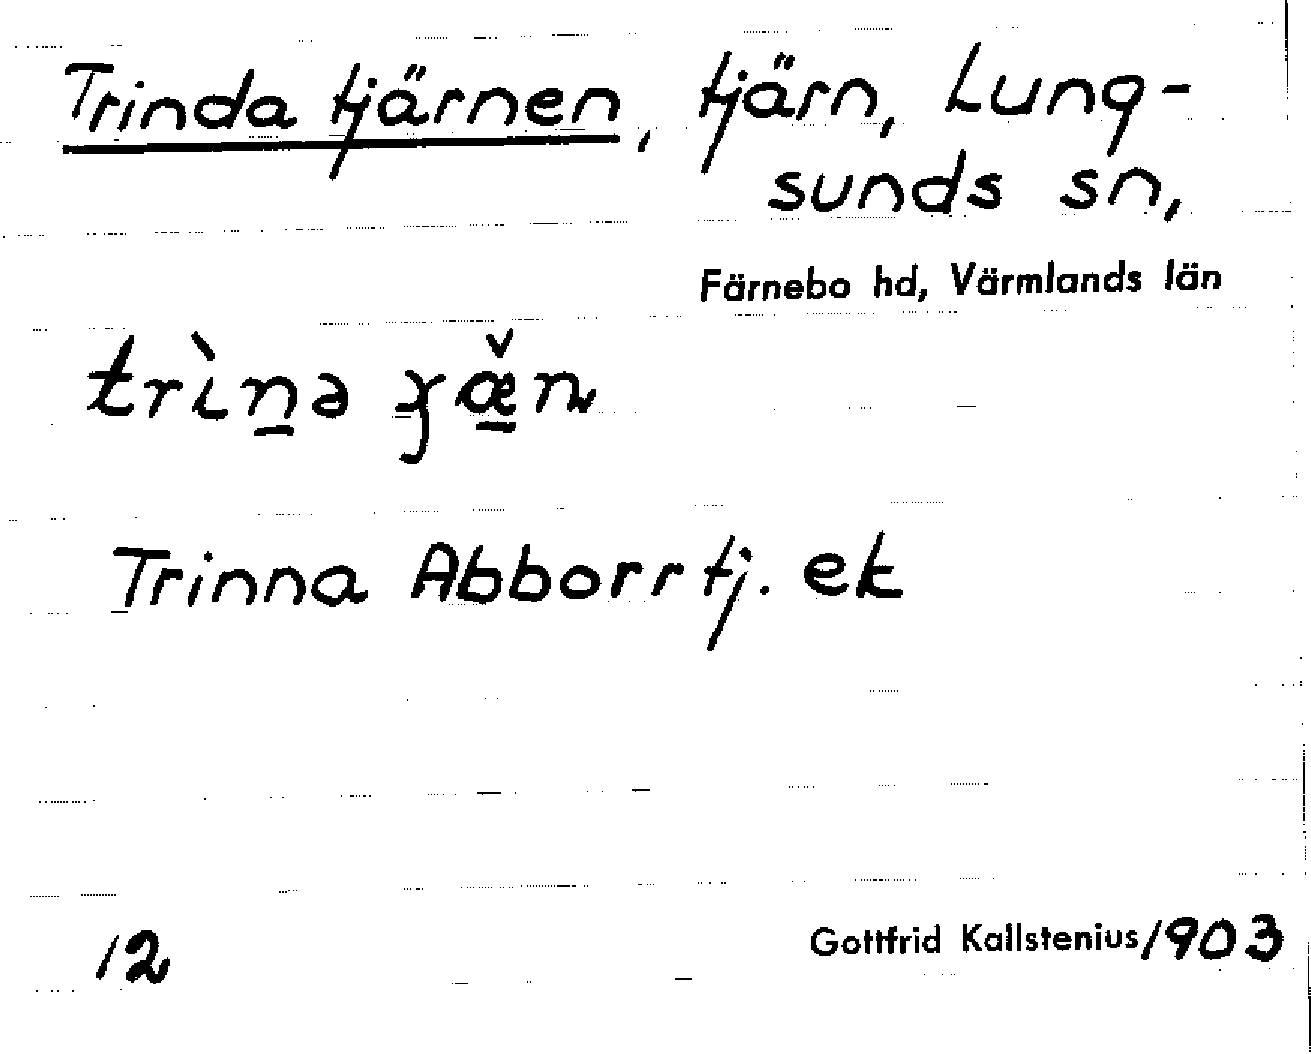 Trinda tjärnen, tjärn, Lung-
sunds sn,
Färnebo hd, Värmlands län
Trinna Abborrtj. ek
12
Gottfrid Kallstenius 1903